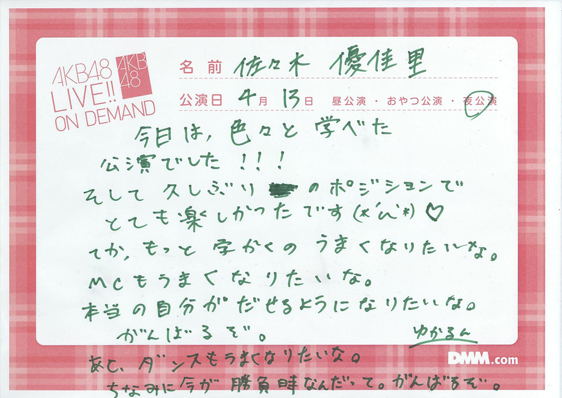 AKB48
LIVE!!
ON DEMAND
AKB
48
名前 佐々木 優佳里
公演日 4月 13日 昼公演・おやつ公演・夜公演
今日は、色々と学べた
公演でした!!!
そして久しぶり のポジションで
とても楽しかったです(*'ω'*)♡
てか、もっと字かくのうまくなりたいな。
MCもうまくなりたいな。
本当の自分がだせるようになりたいな。
がんばるぞ。
ゆかるん
DMM.com
あと、ダンスもうまくなりたいな。
ちなみに今が勝負時なんだって。がんばるぞ。